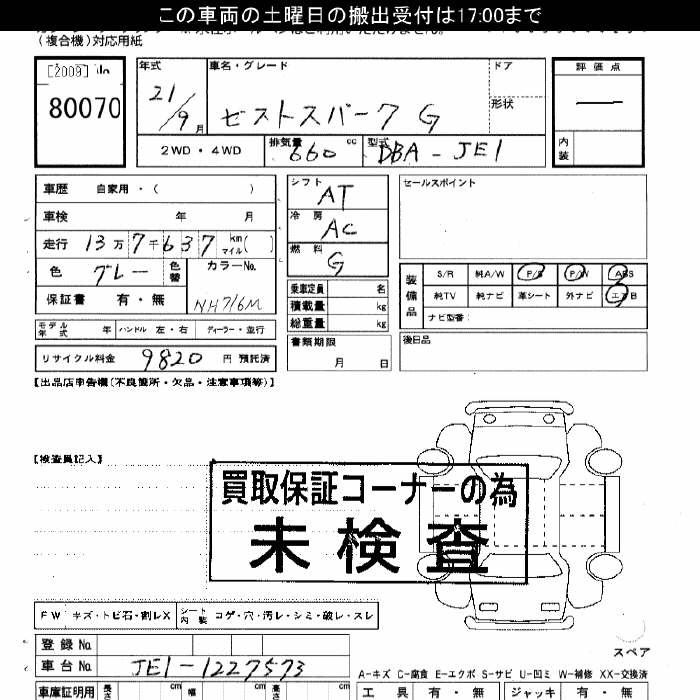 この車両の土曜日の搬出受付は17:00まで
(複合機)対応用紙
[2009] No
80070
年式
21/9月
車名・グレード
ゼストスパーク G
ドア
形状
評価点
内装
2WD・4WD
排気量 660 cc
型式 DBA-JE1
車歴 自家用・( )
車検 年 月
走行 13万7千637 km マイル ( )
色 グレー 色替
カラーNo. NH716M
保証書 有・無
シフト AT
冷房 AC
燃料 G
乗車定員 名
積載量 kg
総重量 kg
セールスポイント
装備品
S/R 純A/W P/S P/W ABS
純TV 純ナビ 革シート 外ナビ エアB
ナビ型番:
モデル年式 年 ハンドル 左・右 ディーラー・並行
リサイクル料金 9820 円 預託済
書類期限 月 日
後日品
【出品店申告欄(不良箇所・欠品・注意事項等)】
【検査員記入】
買取保証コーナーの為
未検査
FW キズ・トビ石・割レX
シート内装 コゲ・穴・汚レ・シミ・破レ・スレ
スペア
登録No.
車台No. JE1-1227573
A-キズ C-腐食 E-エクボ S-サビ U-凹ミ W-補修 XX-交換済
車庫証明用 長さ cm 幅 cm 高さ cm
工具 有・無 ジャッキ 有・無